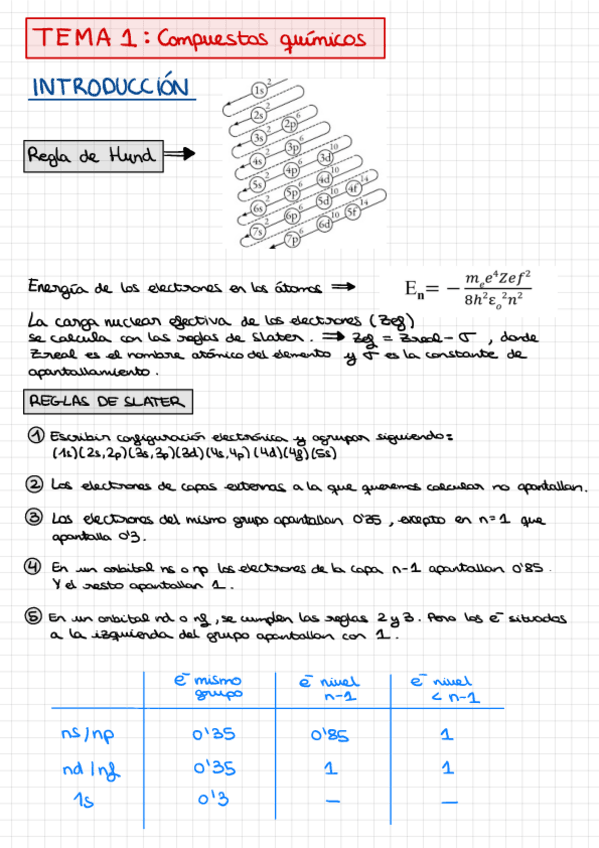 TEMA 1: Compuestos químicos
INTRODUCCIÓN
Regla de Hund ⇒
1s²
2s² 2p⁶
3s² 3p⁶ 3d¹⁰
4s² 4p⁶ 4d¹⁰ 4f¹⁴
5s² 5p⁶ 5d¹⁰ 5f¹⁴
6s² 6p⁶ 6d¹⁰
7s² 7p⁶
Energía de los electrones en los átomos ⇒ Eₙ = − mₑe⁴Zef² / 8h²εₒ²n²
La carga nuclear efectiva de los electrones (Zef)
se calcula con las reglas de Slater. ⇒ Zef = Zreal − σ , donde
Zreal es el nombre atómico del elemento y σ es la constante de
apantallamiento.
REGLAS DE SLATER
① Escribir configuración electrónica y agrupar siguiendo:
(1s)(2s,2p)(3s,3p)(3d)(4s,4p)(4d)(4f)(5s)
② Los electrones de capas externas a la que queremos calcular no apantallan.
③ Los electrones del mismo grupo apantallan 0'35, excepto en n=1 que
apantalla 0'3.
④ En un orbital ns o np los electrones de la capa n-1 apantallan 0'85.
Y el resto apantallan 1.
⑤ En un orbital nd o nf, se cumplen las reglas 2 y 3. Pero los e⁻ situados
a la izquierda del grupo apantallan con 1.
e⁻ mismo grupo e⁻ nivel n-1 e⁻ nivel < n-1
ns/np 0'35 0'85 1
nd/nf 0'35 1 1
1s 0'3 — —